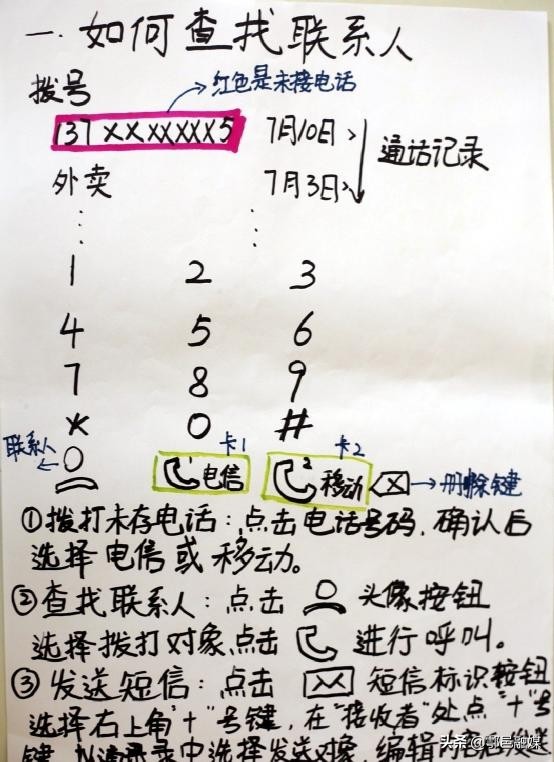 一.如何查找联系人
拨号
红色是未接电话
137 xxxxxxx5 7月10日
通话记录
外卖 7月3日
1 2 3
4 5 6
7 8 9
* 0 #
联系人
卡1
卡2
1 电信
2 移动
X
删除键
①拨打未存电话:点击电话号码,确认后
选择电信或移动。
②查找联系人:点击 头像按钮
选择拨打对象点击 进行呼叫。
③发送短信:点击 短信标识按钮
选择右上角"+"号键,在"接收者"处点"+"号
键,从通讯录中选择发送对象,编辑内容后发送
头条@鄠邑融媒